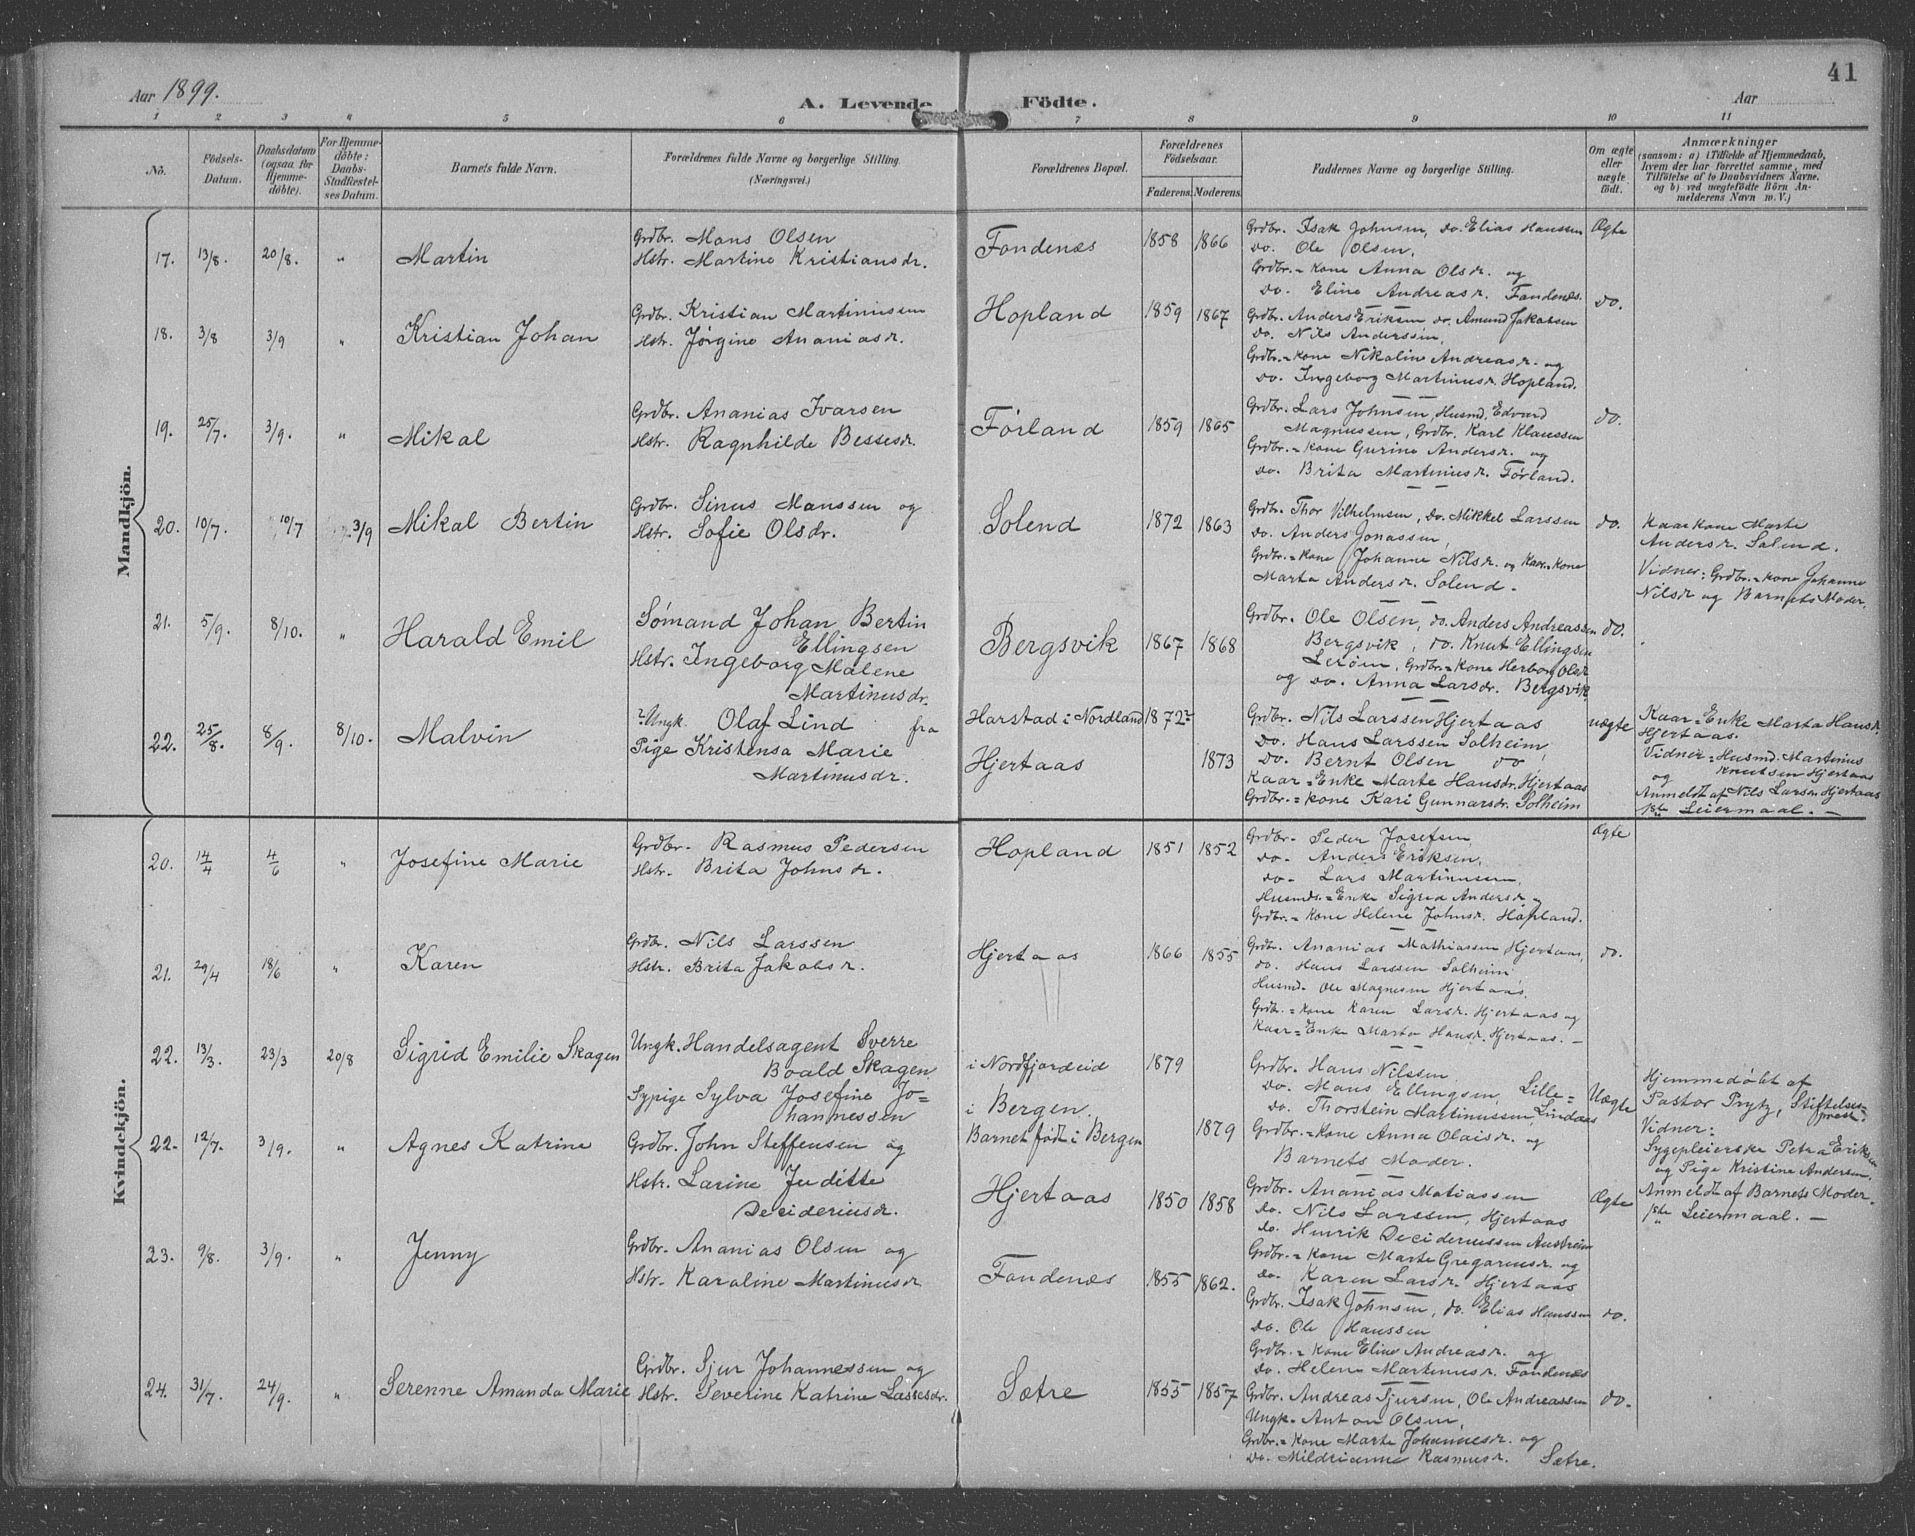 Aar 1899.
A. Levende Födte.
Aar
41
1 2 3 4 5 6 7 8 9 10 11
No.
Födsels-
Datum.
Daabsdatum
(ogsaa for
Hjemme-
döbte).
For Hjemme-
döbte:
Daabs-
Stadfæstel-
ses Datum.
Barnets fulde Navn.
Forældrenes fulde Navne og borgerlige Stilling.
(Næringsvei.)
Forældrenes Bopæl.
Forældrenes
Födselsaar.
Faderens. Moderens.
Faddernes Navne og borgerlige Stilling.
Om ægte
eller
uægte
födt.
Anmærkninger
(saasom: a) i Tilfælde af Hjemmedaab,
hvem der har forrettet samme, med
Tilföielse af to Daabsvidners Navne.
og b) ved uægtefödte Börn An-
melderens Navn m. V.)
Mandkjön.
17. 13/8. 20/8. " Martin
Grdbr. Mons Olsen
Hstr. Martine Kristiansdr.
Fondenæs 1858 1866
Grdbr. Isak Johnsen, do. Elias Hanssen
do. Ole Olsen.
Grdbr.=kone Anna Olsdr. og
do. Eline Andreasr. Fondenæs.
Ægte
18. 3/8 3/9 " Kristian Johan
Grdbr. Kristian Martinussen
Hstr. Jørgine Ananiasr.
Hopland 1859 1867
Grdbr. Anders Eriksen do. Amund Jakobsen
do. Nils Anderssen,
Grdbr.=kone Nikoline Andreasr. og
do. Ingeborg Martinusr. Hopland.
do.
19. 25/7. 3/9. " Mikal
Grdbr. Ananias Ivarsen
Hstr. Ragnhilde Bessesr.
Førland 1859 1865
Grdbr. Lars Johnsen, Husmd. Edvard
Magnussen, Grdbr. Karl Klaussen
Grdbr.=kone Gurine Andersr. og
do. Brita Martinusr. Førland.
do.
20. 10/7. 10/7 3/9 Mikal Bertin
Grdbr. Sinus Monssen og
Hstr. Sofie Olsdr.
Solend 1872 1863
Grdbr. Thor Vilhelmsen, do. Mikkel Larssen
do. Anders Jonassen,
Grdbr.=kone Johanne Nilsr. og Kaar=kone
Marta Andersr. Solend.
do.
Kaarkone Marte
Andersr. Solend.
Vidner: Grdbr.=kone Johanne
Nilsr og Barnets Moder.
21. 5/9. 8/10. " Harald Emil
Sømand Johan Bertin
Ellingsen
Hstr. Ingeborg Malene
Martinusdr.
Bergsvik 1867 1868
Grdbr. Ole Olsen, do. Anders Andreassen
Bergsvik, do. Knut Ellingsen
Lerøen, Grdbr.=kone Herborg Olsdr
og do. Anna Larsdr. Bergsvik
do.
22. 25/8. 8/9. 8/10. Malvin
? Ungk. Olaf Lind fra
Pige Kristensa Marie
Martinusdr.
Harstad i Nordland 1872?
Hjertaas 1873
Grdbr. Nils Larssen Hjertaas
do. Hans Larssen Solheim,
do. Bernt Olsen do,
Kaar=Enke Marte Hansdr. Hjertaas
Grdbr.=kone Kari Gunnarsdr. Solheim
uægte
Kaar=Enke Marta Hansr.
Hjertaas.
Vidner: Husmd. Martinus
Knutsen Hjertaas
og
Anmeldt af Nils Larsen Hjertaas
1ste Leiermaal. —
Kvindekjön.
20. 14/4 4/6 " Josefine Marie
Grdbr. Rasmus Pedersen
Hstr. Brita Johnsdr.
Hopland 1851 1852
Grdbr. Peder Josefsen,
do. Anders Eriksen,
do. Lars Martinussen,
Husmds.=Enke Sigrid Andersr og
Grdbr.=kone Helene Johnsr. Hopland.
Ægte
21. 29/4 18/6 " Karen
Grdbr. Nils Larssen
Hstr. Brita Jakobsr.
Hjertaas 1866 1855
Grdbr. Ananias Mathiassen Hjertaas,
do. Hans Larssen Solheim
Husmd. Ole Magnesen Hjertaas.
Grdbr.=kone Karen Larsr. Hjertaas og
Kaar=Enke Marta Hansr. Hjertaas. —
do.
22. 13/3. 23/3 20/8 Sigrid Emilie Skagen
Ungk. Handelsagent Sverre
Boald Skagen
Sypige Sylva Josefine Jo=
hannessen
i Nordfjordeid 1879
i Bergen.
Barnet født i Bergen 1879
Grdbr. Hans Nilssen
do. Mons Ellingsen, Lille=
do. Thorstein Martinussen, Lindaas
Grdbr.=kone Anna Olaisdr. og
Barnets Moder.
Uægte
Hjemmedøbt af
Pastor Prytz, Stiftelses-
prest.
Vidner:
Sygepleierske Petra Eriksen
og Pige Kristine Andersen.
Anmeldt af Barnets Moder.
1ste Leiermaal. —
22. 12/7. 3/9. " Agnes Katrine
Grdbr. John Steffensen og
Hstr. Larine Juditte
Decideriusr.
Hjertaas 1850 1858
Grdbr. Ananias Matiassen
do. Nils Larssen, Hjertaas
do. Henrik Decideriussen Austreim
Grdbr.=kone Marte Gregoriusr. og
do. Karen Larsr. Hjertaas
Ægte
23. 9/8. 3/9. " Jenny
Grdbr. Ananias Olsen og
Hstr. Karoline Martinusdr
Fondenæs 1855 1862.
Grdbr. Isak Johnsen, do. Elias Hanssen
do. Ole Hanssen
Grdbr.=kone Eline Andreasr. og
do. Helene Martinusr. Fondenæs
do.
24. 31/7. 24/9. " Serenne Amanda Marie
Grdbr. Sjur Johannessen og
Hstr. Severine Katrine Lassesdr.
Sætre 1855 1857
Grdbr. Andreas Sjursen, Ole Andreassen
Ungk. Anton Olsen,
Grdbr.=kone Marte Johannesr. og
do. Mildrianne Rasmusr. Sætre.
do.